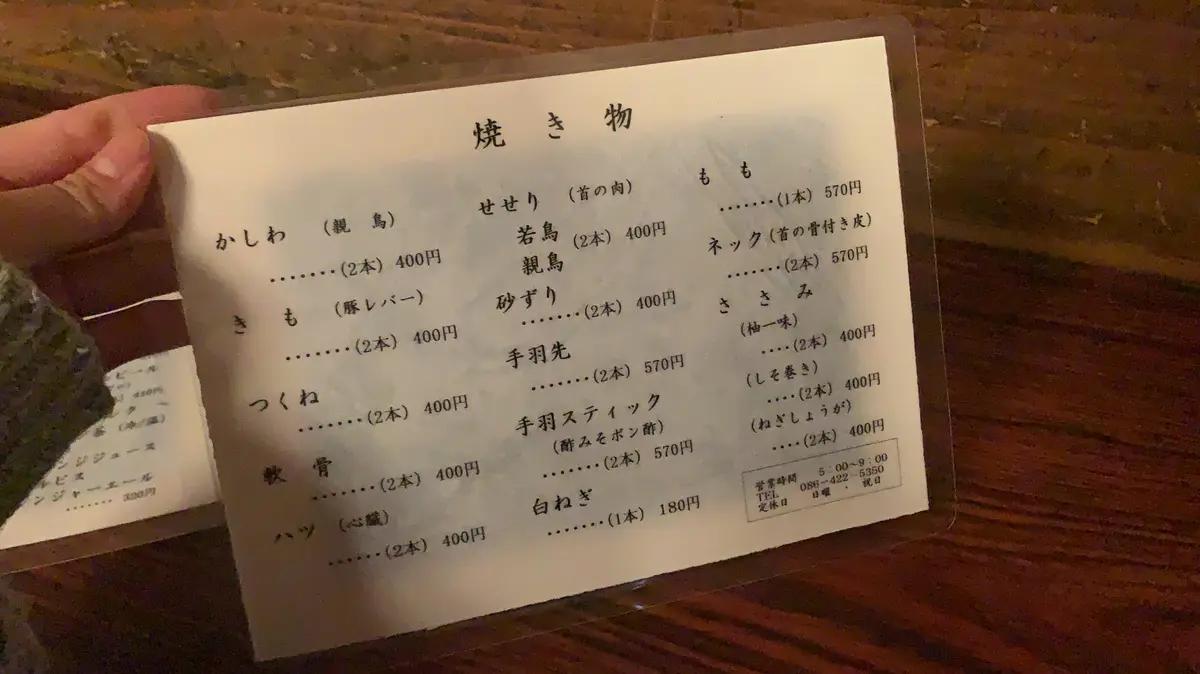 焼き物
かしわ (親鳥)
.......(2本) 400円
きも (豚レバー)
.......(2本) 400円
つくね
.......(2本) 400円
軟骨
.......(2本) 400円
ハツ (心臓)
......(2本) 400円
せせり (首の肉)
若鳥
親鳥
(2本) 400円
砂ずり
.......(2本) 400円
手羽先
.......(2本) 570円
手羽スティック
(酢みそポン酢)
.......(2本) 570円
白ねぎ
.......(1本) 180円
もも
.......(1本) 570円
ネック(首の骨付き皮)
.......(2本) 570円
ささみ
(柚一味)
....(2本) 400円
(しそ巻き)
....(2本) 400円
(ねぎしょうが)
....(2本) 400円
営業時間 5:00~9:00
TEL 086-422-5350
定休日 日曜・祝日
ンジジュース
ルピス
ンジャーエール
......320円